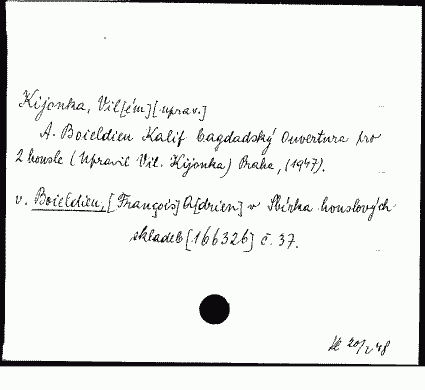 Kijonka, Vil[ém] [uprav.]
A. Boieldieu Kalif bagdadský Ouvertura pro
2 housle (Upravil Vil. Kijonka) Praha, (1947).
v. Boieldieu, [François] A[drien] v Sbírka houslových
skladeb [166326] č. 37.
20/I 48